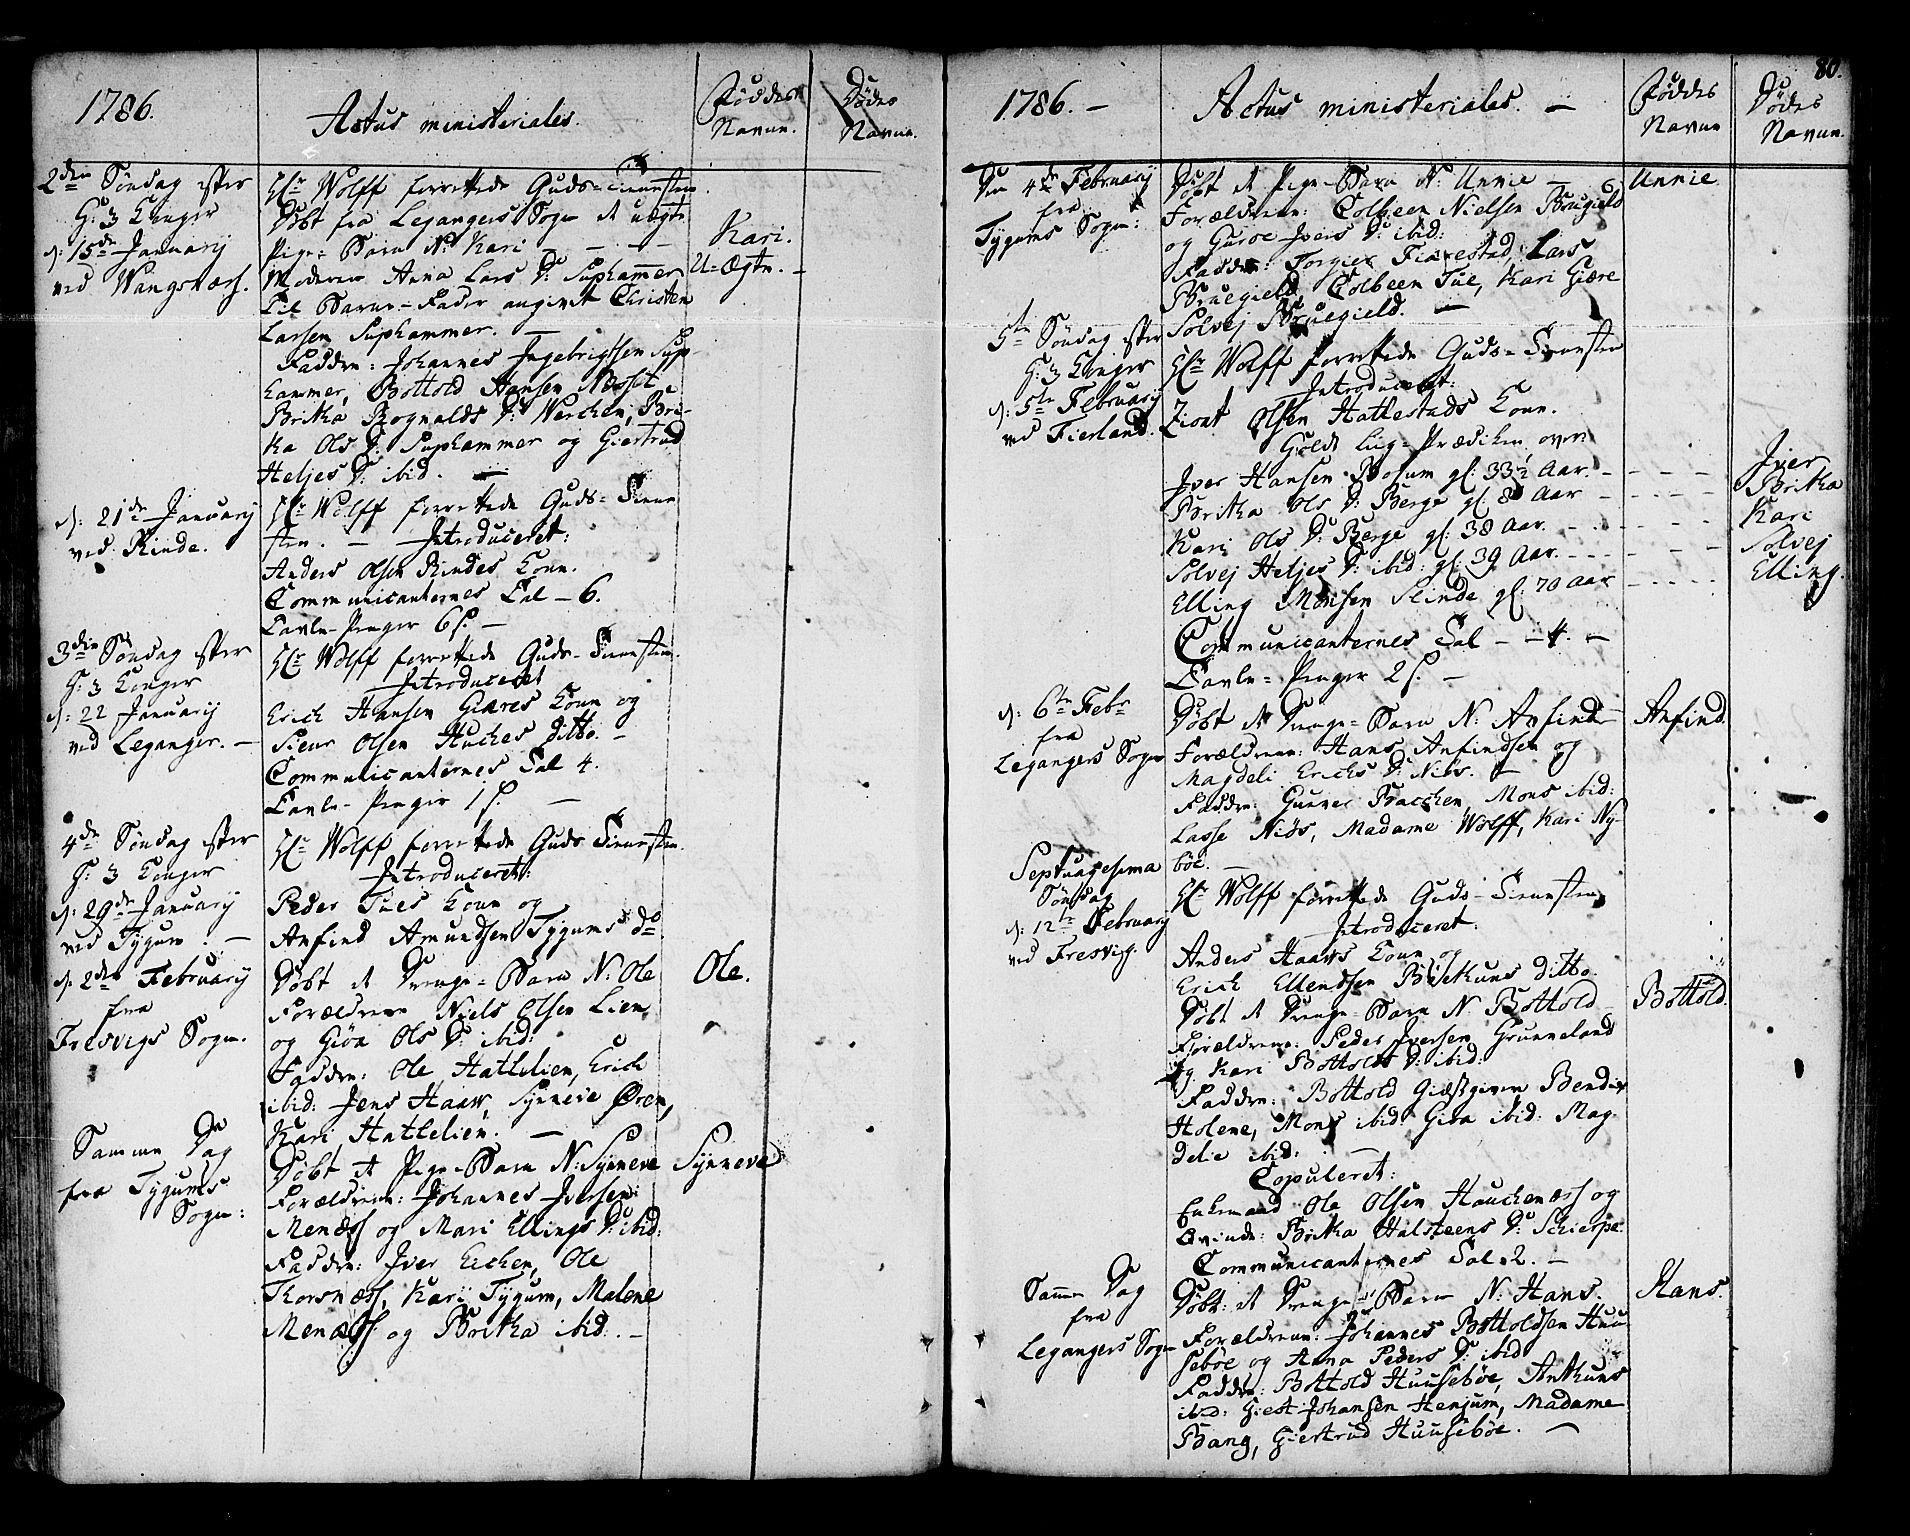 1786.
Actus ministeriales.
Føddes
Navne.
Dødes
Navne.
2den Søndag efter
H: 3 Konger
d: 15de Januarij
ved Wangsnæss.
Hr Wolff forrettede Guds-Tienesten.
Døbt fra Legangers Sogn et uægte
Pige-Barn N: Kari - - - -
Kari.
Moderen Anna Lars D: Suphammer
U-Ægte. -
Til Barne-Fader angivet Christen
Larsen Suphammer. -
Faddre: Johannes Ingebrigtsen Sup-
hammer, Bottold Hansen Nesset
Britha Rognalds D: Werchen, Bri-
ta Ols D: Suphammer og Giertrud
Heljes D: ibid. -
d: 21de Januarij
ved Rinde.
Hr Wolff forrettede Guds-Tiene
sten. - Introduceret:
Anders Olsen Rindes Kone.
Communicanternes Tal - 6.
Tavle-Penger 6 s. -
3die Søndag efter
H: 3 Konger
d: 22 Januarij
ved Leganger. -
Hr Wolff forrettede Guds-Tienesten.
Introduceret
Erich Hansen Giæres Kone og
Siur Olsen Huches ditto. -
Communicanternes Tal 4.
Tavle-Penger 1 s. -
4de Søndag efter
H: 3 Konger
d: 29de Januarij
ved Tygum. -
Hr Wolff forrettede Guds Tienesten.
Introduceret:
Peder Tues Kone og
Anfind Amundsen Tygums do
d. 2den Februarij
fra
Fresvigs Sogn.
Døbt et Drenge-Barn N: Ole
Ole.
Forældrene Niels Olsen Lien
og Giøa Ols D: ibid:
Faddre: Ole Hattelien, Erich
ibid: Jens Haaw, Synneve Øren,
Kari Hattelien. -
Samme Dag
fra Tygums
Sogn:
Døbt et Pige-Barn N: Synneve
Synneve
Forældrene: Johannes Iversen
Menæss og Mari Ellings D: ibid:
Faddre: Iver Eichen, Ole
Thorsnæss, Kari Tygum, Malene
Menæss og Britha ibid. -
80.
1786. -
Actus ministeriales. -
Føddes
Navne
Dødes
Navne.
Den 4de Februarij
fra
Tygums Sogn:
Døbt et Pige-Barn N: Unnie -
Unnie
Forældrene: Colbeen Nielsen Bruegield
og Guroe Ivers D: ibid:
Faddre: Torgier Fierestad, Lars
Bruegield, Colbeen Tue, Kari Giære
Solvej Bruegield. -
5te Søndag efter
H: 3 Konger
d: 5te Februarij
ved Fierland.
Hr Wolff forrettede Guds-Tienesten
Introduceret:
Zioat Olsen Hattestads Kone.
Holdt Liig-Prædiken over
Iver Hansen Bosum gl: 33½ Aar. - - - - -
Iver
Britha Ols D: Berge gl: 8 Aar - - - -
Britha
Kari Ols D: Berge gl: 38 Aar. - - - -
Kari
Solvej Heljes D: ibid: gl: 39 Aar. - - - -
Solvej
Elling Monsen Slinde gl: 70 Aar - - - -
Elling.
Communicanternes Tal - - 4. -
Tavle-Penger 2 s. -
d: 6te Febr
fra
Legangers Sogn
Døbt et Drenge-Barn N: Anfind
Anfind.
Forældrene: Hans Anfindsen og
Magdeli Erichs D: Niøs. -
Faddre: Gunner Bacchen, Mons ibid:
Lasse Niøs, Madame Wolff, Kari Ny-
bøe. -
Septuagesima
Søndag
d: 12te Februarij
ved Fresvig.
Hr Wolff forrettede Guds-Tienesten
Introduceret:
Anders Haaws Kone og
Erich Ellendsen Bøthuns ditto.
Døbt et Drenge-Barn N: Bottold
Bottold.
Forældrene: Peder Iversen Grunneland
og Kari Bottolds D: ibid:
Faddre: Bottold Giæstgiver Bendix
Holene, Mons ibid Giøa ibid: Mag-
delie ibid: -
Copuleret:
Enkemand Ole Olsen Hauchenæss og
Qvinde: Britha Halsteens D: Schierpe
Communicanternes Tal 2. -
Samme Dag
fra
Legangers Sogn
Døbt: et Drenge-Barn N: Hans.
Hans.
Forældrene: Johannes Bottoldsen Huu-
sebøe og Anna Peders D: ibid
Faddre: Bottold Huusebøe, Anthuns
ibid: Giest Johansen Henjum, Madame
Bang, Giertrud Huusebøe. -